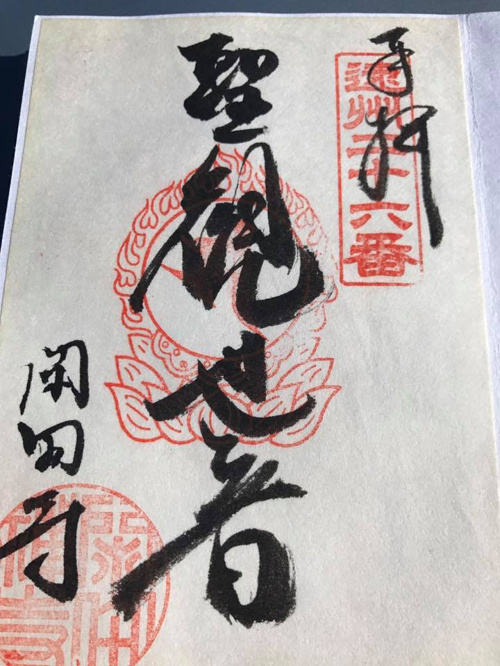 奉拝
遠州二十六番
聖観世音
閑田寺